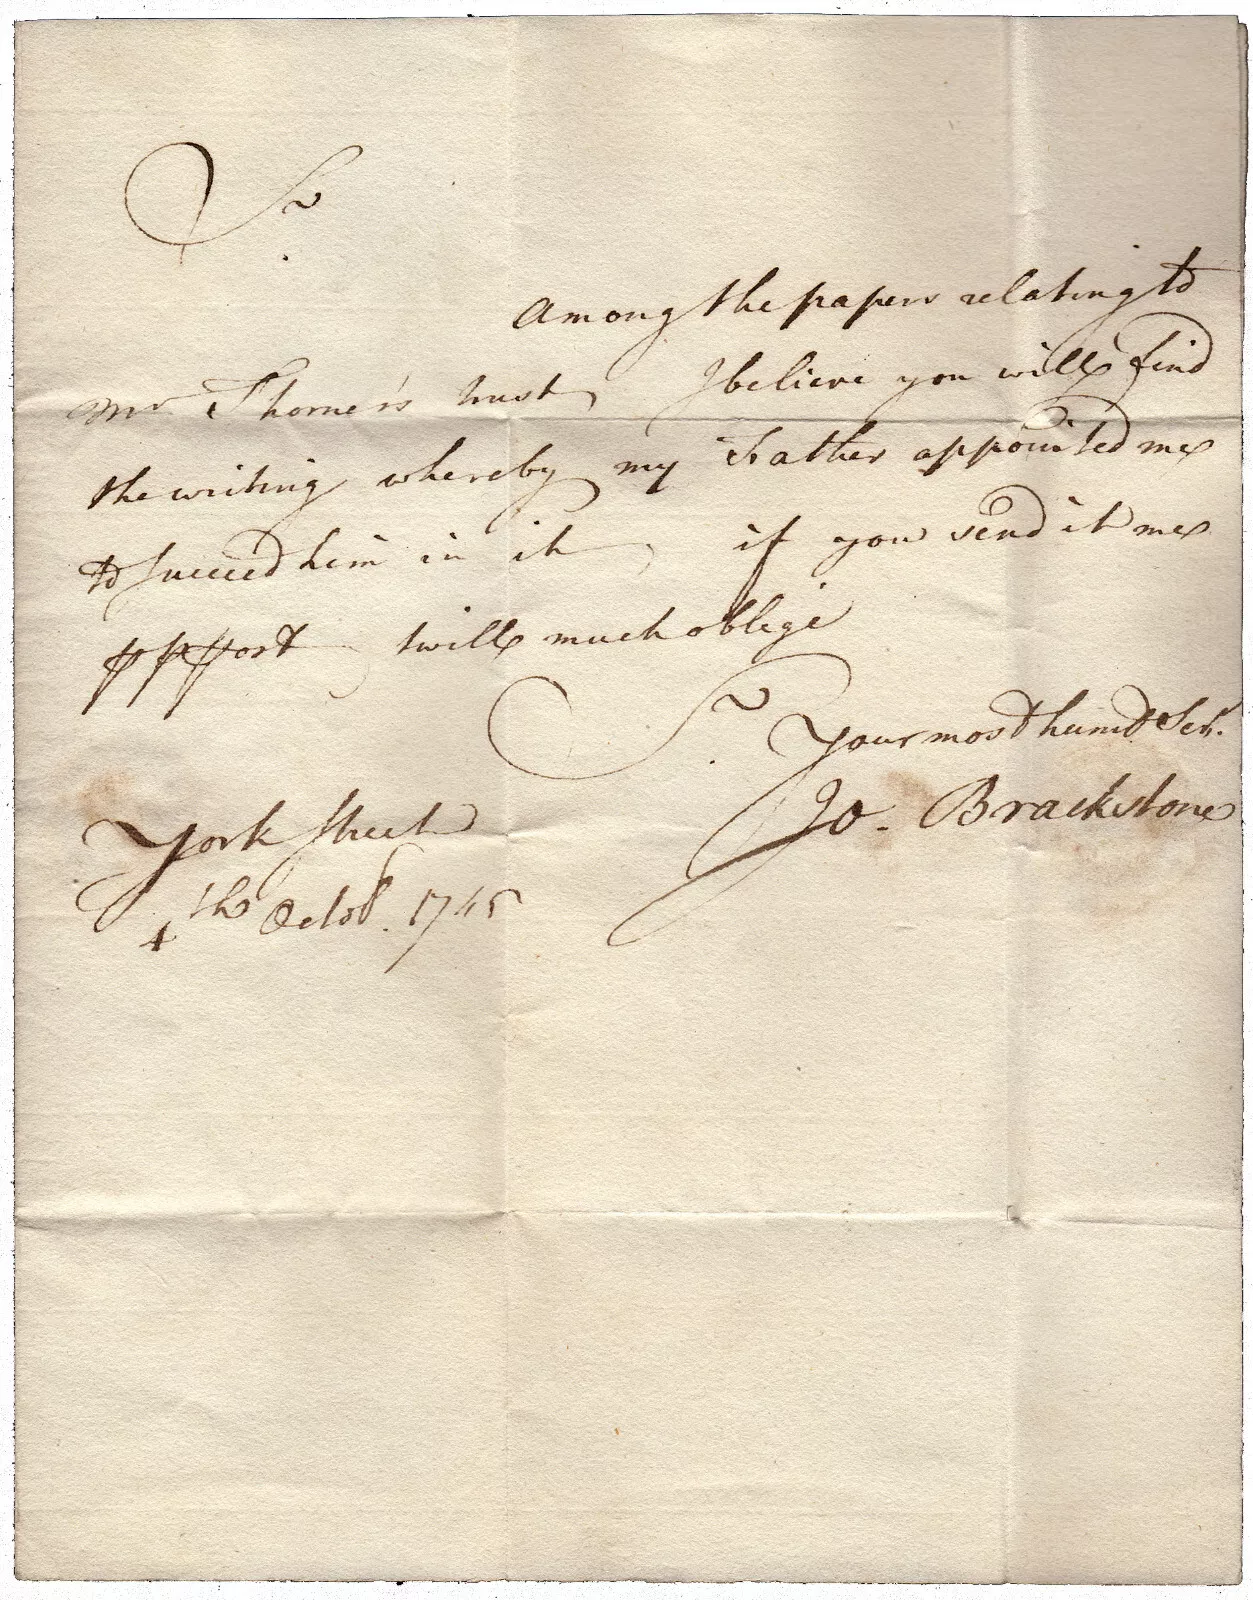 Sr.
Among the papers relating to
Mr Thorner's trust, I believe you will find
the writing whereby my Father appointed me
to succeed him in it, if you send it me
p post, twill much oblige
Sr. Your most humb Sert.
Jo. Brackstone
York Street
4th Octobr. 1745